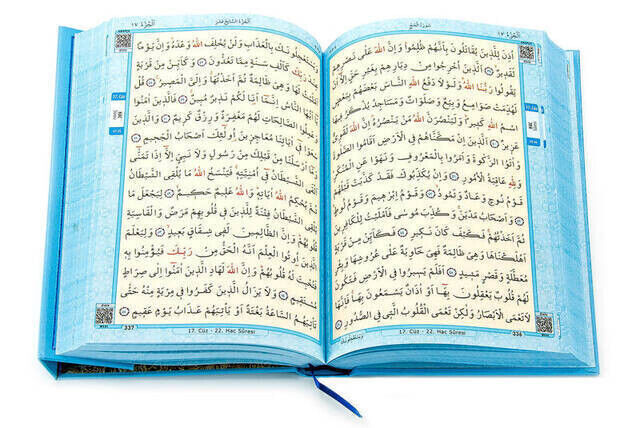 اَلْجُزْءُ ١٧
سُورَةُ الْحَجِّ
اُذِنَ لِلَّذِينَ يُقَاتَلُونَ بِاَنَّهُمْ ظُلِمُوا وَاِنَّ اللّٰهَ عَلٰى نَصْرِهِمْ
لَقَدِيرٌ ﴿٣٩﴾ اَلَّذِينَ اُخْرِجُوا مِنْ دِيَارِهِمْ بِغَيْرِ حَقٍّ اِلَّا اَنْ
يَقُولُوا رَبُّنَا اللّٰهُ وَلَوْلَا دَفْعُ اللّٰهِ النَّاسَ بَعْضَهُمْ بِبَعْضٍ
لَهُدِّمَتْ صَوَامِعُ وَبِيَعٌ وَصَلَوَاتٌ وَمَسَاجِدُ يُذْكَرُ فِيهَا
اسْمُ اللّٰهِ كَثِيرًا وَلَيَنْصُرَنَّ اللّٰهُ مَنْ يَنْصُرُهُ اِنَّ اللّٰهَ لَقَوِيٌّ
عَزِيزٌ ﴿٤٠﴾ اَلَّذِينَ اِنْ مَكَّنَّاهُمْ فِي الْاَرْضِ اَقَامُوا الصَّلٰوةَ
وَاٰتَوُا الزَّكٰوةَ وَاَمَرُوا بِالْمَعْرُوفِ وَنَهَوْا عَنِ الْمُنْكَرِ
وَلِلّٰهِ عَاقِبَةُ الْاُمُورِ ﴿٤١﴾ وَاِنْ يُكَذِّبُوكَ فَقَدْ كَذَّبَتْ قَبْلَهُمْ
قَوْمُ نُوحٍ وَعَادٌ وَثَمُودُ ﴿٤٢﴾ وَقَوْمُ اِبْرٰهِيمَ وَقَوْمُ لُوطٍ
﴿٤٣﴾ وَاَصْحَابُ مَدْيَنَ وَكُذِّبَ مُوسٰى فَاَمْلَيْتُ لِلْكَافِرِينَ
ثُمَّ اَخَذْتُهُمْ فَكَيْفَ كَانَ نَكِيرِ ﴿٤٤﴾ فَكَاَيِّنْ مِنْ قَرْيَةٍ
اَهْلَكْنَاهَا وَهِيَ ظَالِمَةٌ فَهِيَ خَاوِيَةٌ عَلٰى عُرُوشِهَا وَبِئْرٍ
مُعَطَّلَةٍ وَقَصْرٍ مَشِيدٍ ﴿٤٥﴾ اَفَلَمْ يَسِيرُوا فِي الْاَرْضِ فَتَكُونَ
لَهُمْ قُلُوبٌ يَعْقِلُونَ بِهَا اَوْ اٰذَانٌ يَسْمَعُونَ بِهَا فَاِنَّهَا
لَا تَعْمَى الْاَبْصَارُ وَلٰكِنْ تَعْمَى الْقُلُوبُ الَّتِي فِي الصُّدُورِ ﴿٤٦﴾
17. Cüz - 22. Hac Sûresi
336
اَلْجُزْءُ السَّابِعَ عَشَرَ
اَلْجُزْءُ ١٧
وَيَسْتَعْجِلُونَكَ بِالْعَذَابِ وَلَنْ يُخْلِفَ اللّٰهُ وَعْدَهُ وَاِنَّ يَوْمًا
عِنْدَ رَبِّكَ كَاَلْفِ سَنَةٍ مِمَّا تَعُدُّونَ ﴿٤٧﴾ وَكَاَيِّنْ مِنْ قَرْيَةٍ
اَمْلَيْتُ لَهَا وَهِيَ ظَالِمَةٌ ثُمَّ اَخَذْتُهَا وَاِلَيَّ الْمَصِيرُ ﴿٤٨﴾ قُلْ
يَا اَيُّهَا النَّاسُ اِنَّمَا اَنَا لَكُمْ نَذِيرٌ مُبِينٌ ﴿٤٩﴾ فَالَّذِينَ اٰمَنُوا
وَعَمِلُوا الصَّالِحَاتِ لَهُمْ مَغْفِرَةٌ وَرِزْقٌ كَرِيمٌ ﴿٥٠﴾ وَالَّذِينَ
سَعَوْا فِي اٰيَاتِنَا مُعَاجِزِينَ اُولٰئِكَ اَصْحَابُ الْجَحِيمِ ﴿٥١﴾
وَمَا اَرْسَلْنَا مِنْ قَبْلِكَ مِنْ رَسُولٍ وَلَا نَبِيٍّ اِلَّا اِذَا تَمَنّٰى
اَلْقَى الشَّيْطَانُ فِي اُمْنِيَّتِهِ فَيَنْسَخُ اللّٰهُ مَا يُلْقِي الشَّيْطَانُ
ثُمَّ يُحْكِمُ اللّٰهُ اٰيَاتِهِ وَاللّٰهُ عَلِيمٌ حَكِيمٌ ﴿٥٢﴾ لِيَجْعَلَ مَا
يُلْقِي الشَّيْطَانُ فِتْنَةً لِلَّذِينَ فِي قُلُوبِهِمْ مَرَضٌ وَالْقَاسِيَةِ
قُلُوبُهُمْ وَاِنَّ الظَّالِمِينَ لَفِي شِقَاقٍ بَعِيدٍ ﴿٥٣﴾ وَلِيَعْلَمَ
الَّذِينَ اُوتُوا الْعِلْمَ اَنَّهُ الْحَقُّ مِنْ رَبِّكَ فَيُؤْمِنُوا بِهِ
فَتُخْبِتَ لَهُ قُلُوبُهُمْ وَاِنَّ اللّٰهَ لَهَادِ الَّذِينَ اٰمَنُوا اِلٰى صِرَاطٍ
مُسْتَقِيمٍ ﴿٥٤﴾ وَلَا يَزَالُ الَّذِينَ كَفَرُوا فِي مِرْيَةٍ مِنْهُ حَتّٰى
تَأْتِيَهُمُ السَّاعَةُ بَغْتَةً اَوْ يَأْتِيَهُمْ عَذَابُ يَوْمٍ عَقِيمٍ ﴿٥٥﴾
337
17. Cüz - 22. Hac Sûresi